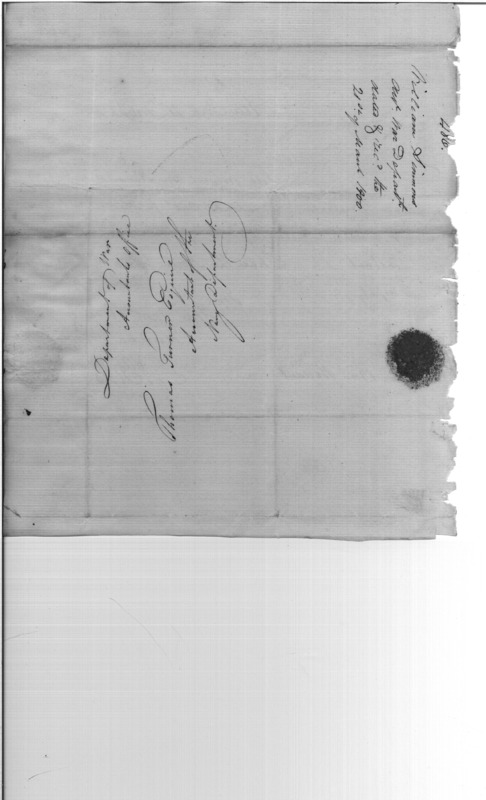 436.
William Simmons
Acct. War Departt.
dated & recd. the
21st. of March 1800
Department of War
Accountants Office
Thomas Turner Esquire
Accountant of the
Navy Department